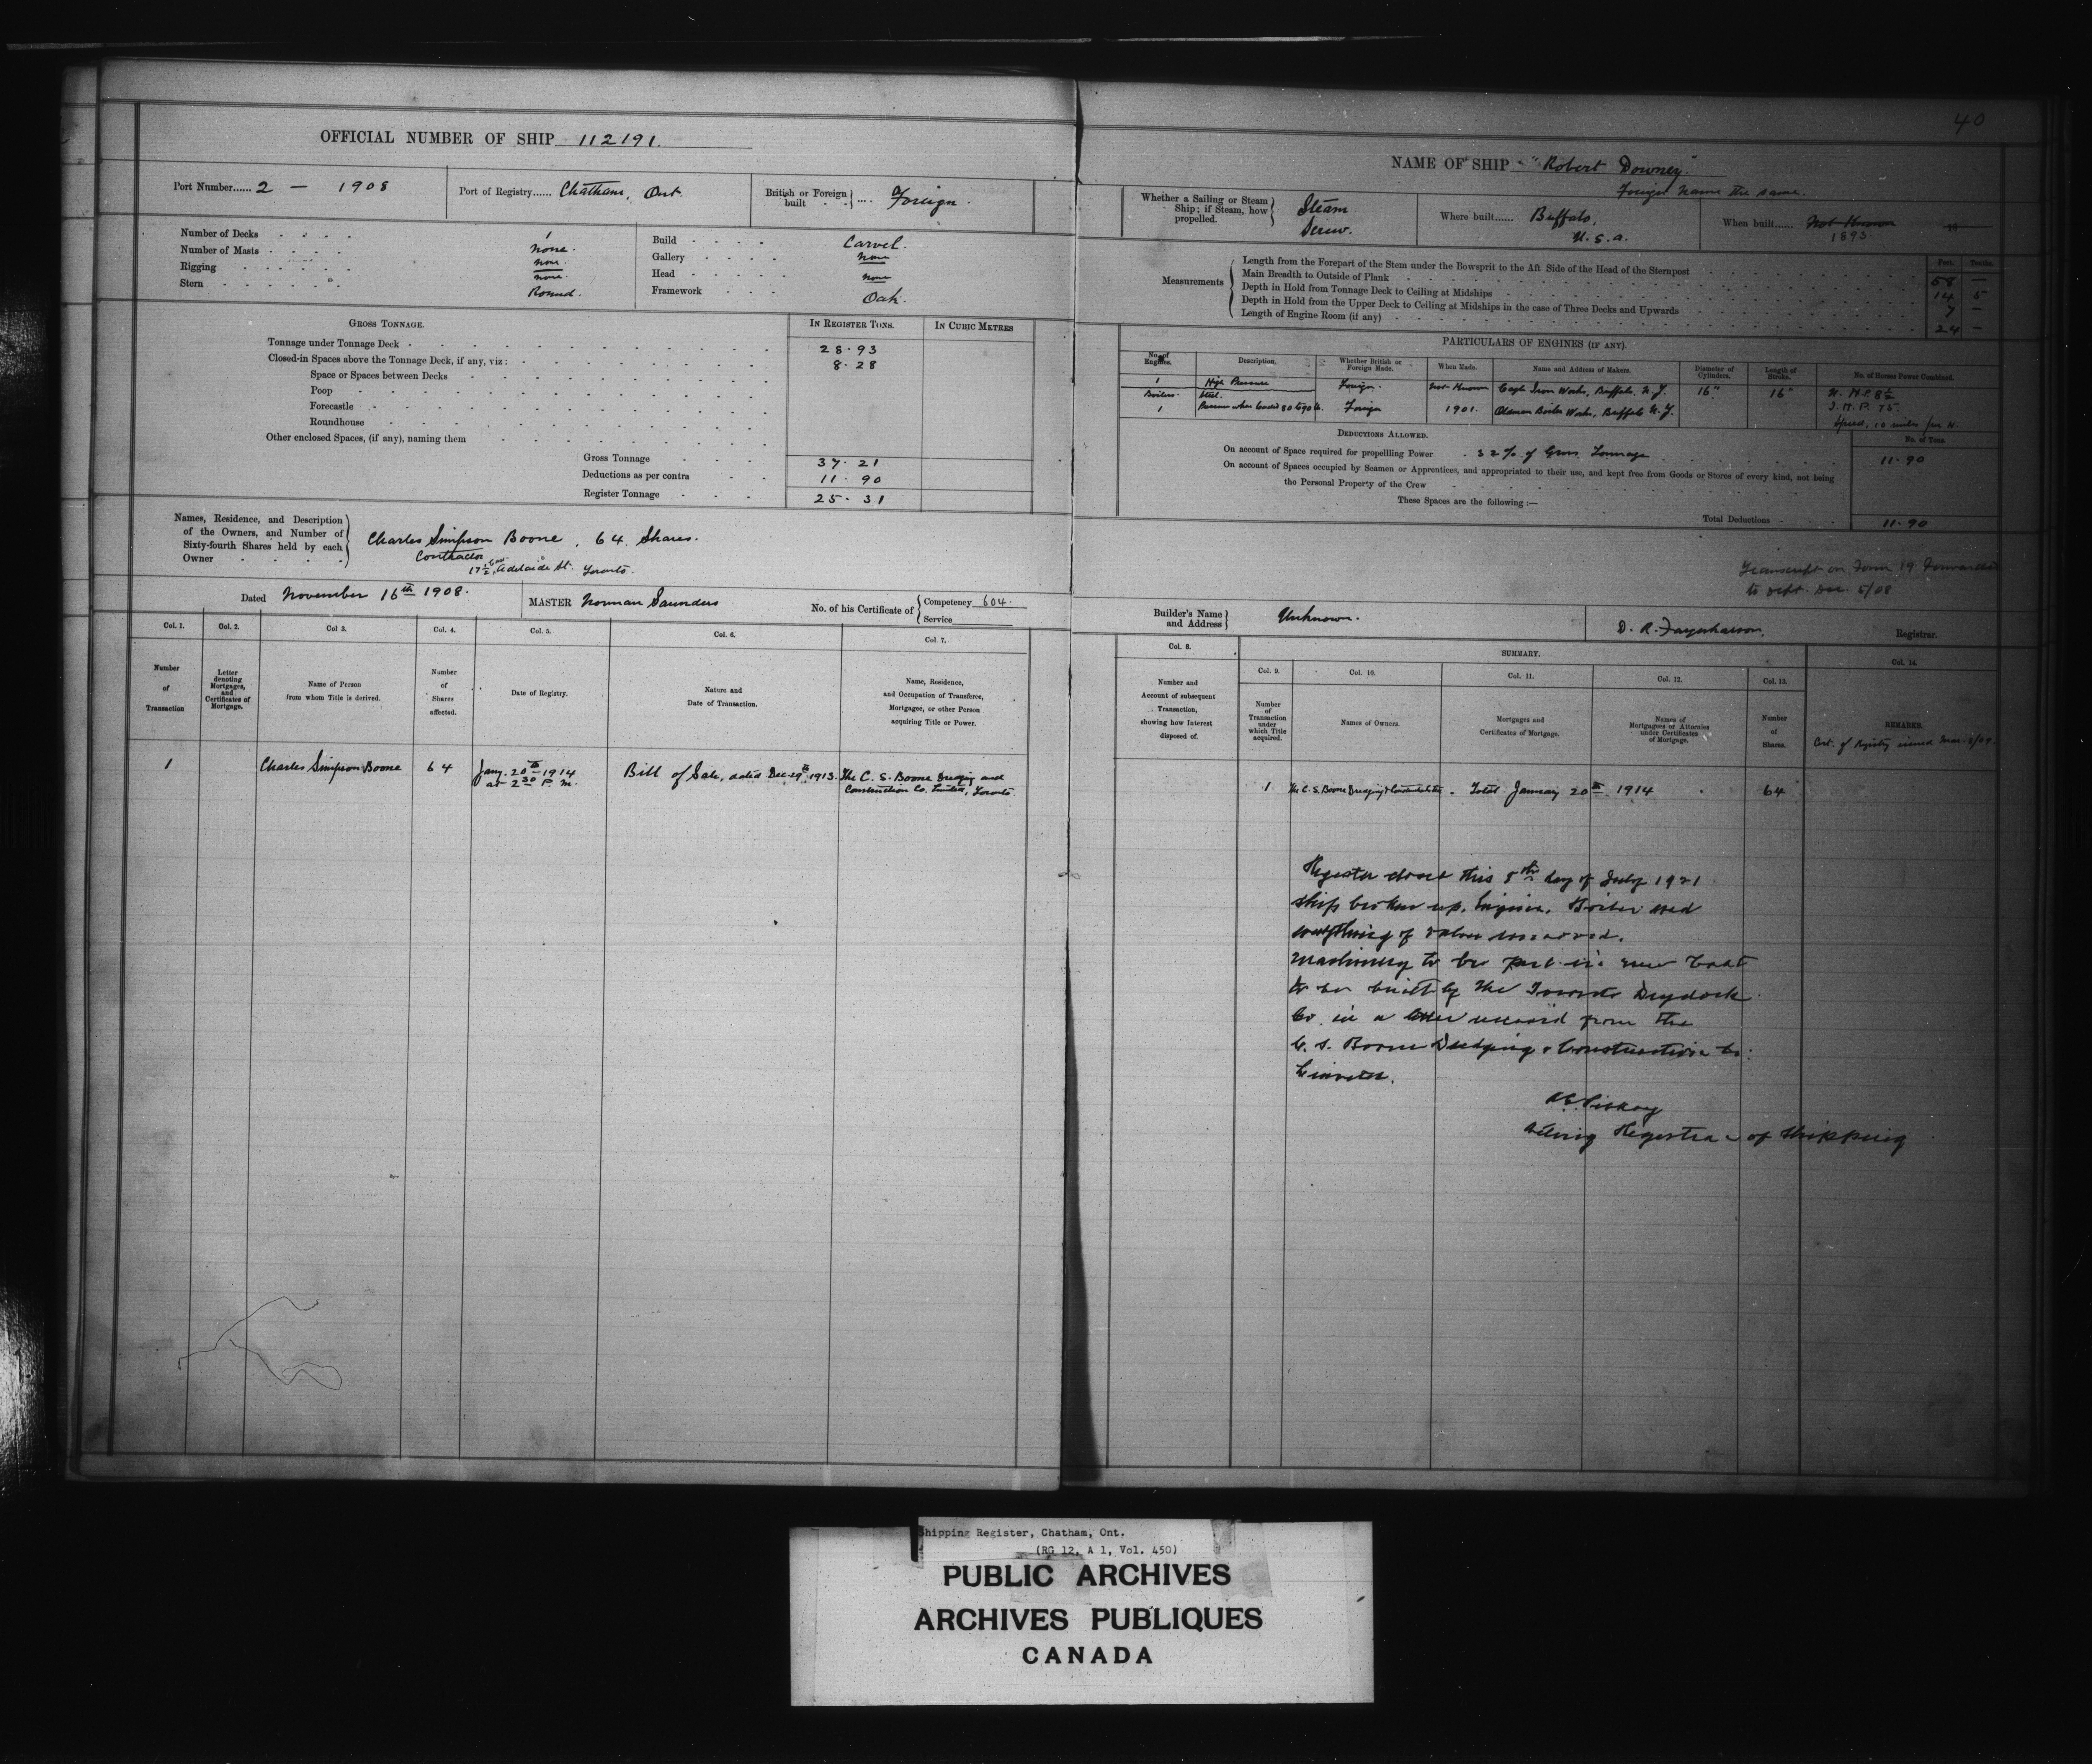 40
OFFICIAL NUMBER OF SHIP 112191.
Port Number...... 2 — 1908
Port of Registry...... Chatham, Ont.
British or Foreign built .... Foreign.
Number of Decks 1
Number of Masts none.
Rigging none.
none.
Stern Round.
Build Carvel.
Gallery none
Head none
Framework Oak.
GROSS TONNAGE. IN REGISTER TONS. IN CUBIC METRES
Tonnage under Tonnage Deck 28.93
Closed-in Spaces above the Tonnage Deck, if any, viz: 8.28
Space or Spaces between Decks
Poop
Forecastle
Roundhouse
Other enclosed Spaces, (if any), naming them
Gross Tonnage 37.21
Deductions as per contra 11.90
Register Tonnage 25.31
Names, Residence, and Description
of the Owners, and Number of
Sixty-fourth Shares held by each
Owner
Charles Simpson Boone, 64 Shares.
Contractor
Adelaide St. Toronto.
Dated November 16th 1908.
MASTER Norman Saunders
No. of his Certificate of Competency 604.
Service
Col. 1. Col. 2. Col 3. Col. 4. Col. 5. Col. 6. Col. 7.
Number of Transaction
Letter denoting Mortgages, and Certificates of Mortgage.
Name of Person from whom Title is derived.
Number of Shares affected.
Date of Registry.
Nature and Date of Transaction.
Name, Residence, and Occupation of Transferee, Mortgagee, or other Person acquiring Title or Power.
1 Charles Simpson Boone 64 Jany. 20th 1914 at 2.30 P.m. Bill of Sale, dated Dec. 29th 1913. The C. S. Boone Dredging and
Construction Co. Limited, Toronto.
NAME OF SHIP "Robert Downey."
Foreign name the same.
Whether a Sailing or Steam Ship; if Steam, how propelled.
Steam
Screw.
Where built...... Buffalo,
U.S.a.
When built...... Not Known
1893
Measurements
Feet. Tenths.
Length from the Forepart of the Stem under the Bowsprit to the Aft Side of the Head of the Sternpost 58 —
Main Breadth to Outside of Plank 14 5
Depth in Hold from Tonnage Deck to Ceiling at Midships 7 —
Depth in Hold from the Upper Deck to Ceiling at Midships in the case of Three Decks and Upwards
Length of Engine Room (if any) 24 —
PARTICULARS OF ENGINES (IF ANY).
No. of Engines. Description. Whether British or Foreign Made. When Made. Name and Address of Makers. Diameter of Cylinders. Length of Stroke. No. of Horses Power Combined.
1 High Pressure Foreign. Not Known Eagle Iron Works, Buffalo, N.Y. 16" 16" N.H.P. 8½
Boilers. Steel. I.H.P. 75.
1 Pressure when loaded 80 to 90 lb. Foreign 1901. Oldman Boiler Works, Buffalo N.Y. Speed, 10 miles per H.
DEDUCTIONS ALLOWED. No. of Tons.
On account of Space required for propelling Power 32% of Gross Tonnage 11.90
On account of Spaces occupied by Seamen or Apprentices, and appropriated to their use, and kept free from Goods or Stores of every kind, not being
the Personal Property of the Crew
These Spaces are the following :—
Total Deductions 11.90
Transcript on Form 19 Forwarded
to Dept. Dec. 5/08
Builder's Name and Address Unknown.
Registrar.
Col. 8. SUMMARY. Col. 14.
Col. 9. Col. 10. Col. 11. Col. 12. Col. 13.
Number and Account of subsequent Transaction, showing how Interest disposed of.
Number of Transaction under which Title acquired.
Names of Owners.
Mortgages and Certificates of Mortgage.
Names of Mortgagees or Attornies under Certificates of Mortgage.
Number of Shares.
REMARKS.
Cert. of Registry issued
1 The C. S. Boone Dredging & Construction Total January 20th 1914 64
Register closed this 8th day of July 1921
Ship broken up. Engine, Boiler and
everything of value removed.
Machinery to be put in new boat
to be built by the Toronto Drydock
Co. in a letter received from the
C. S. Boone Dredging & Construction Co:
Limited.
Acting Registrar of Shipping
Shipping Register, Chatham, Ont.
(RG 12, A 1, Vol. 450)
PUBLIC ARCHIVES
ARCHIVES PUBLIQUES
CANADA